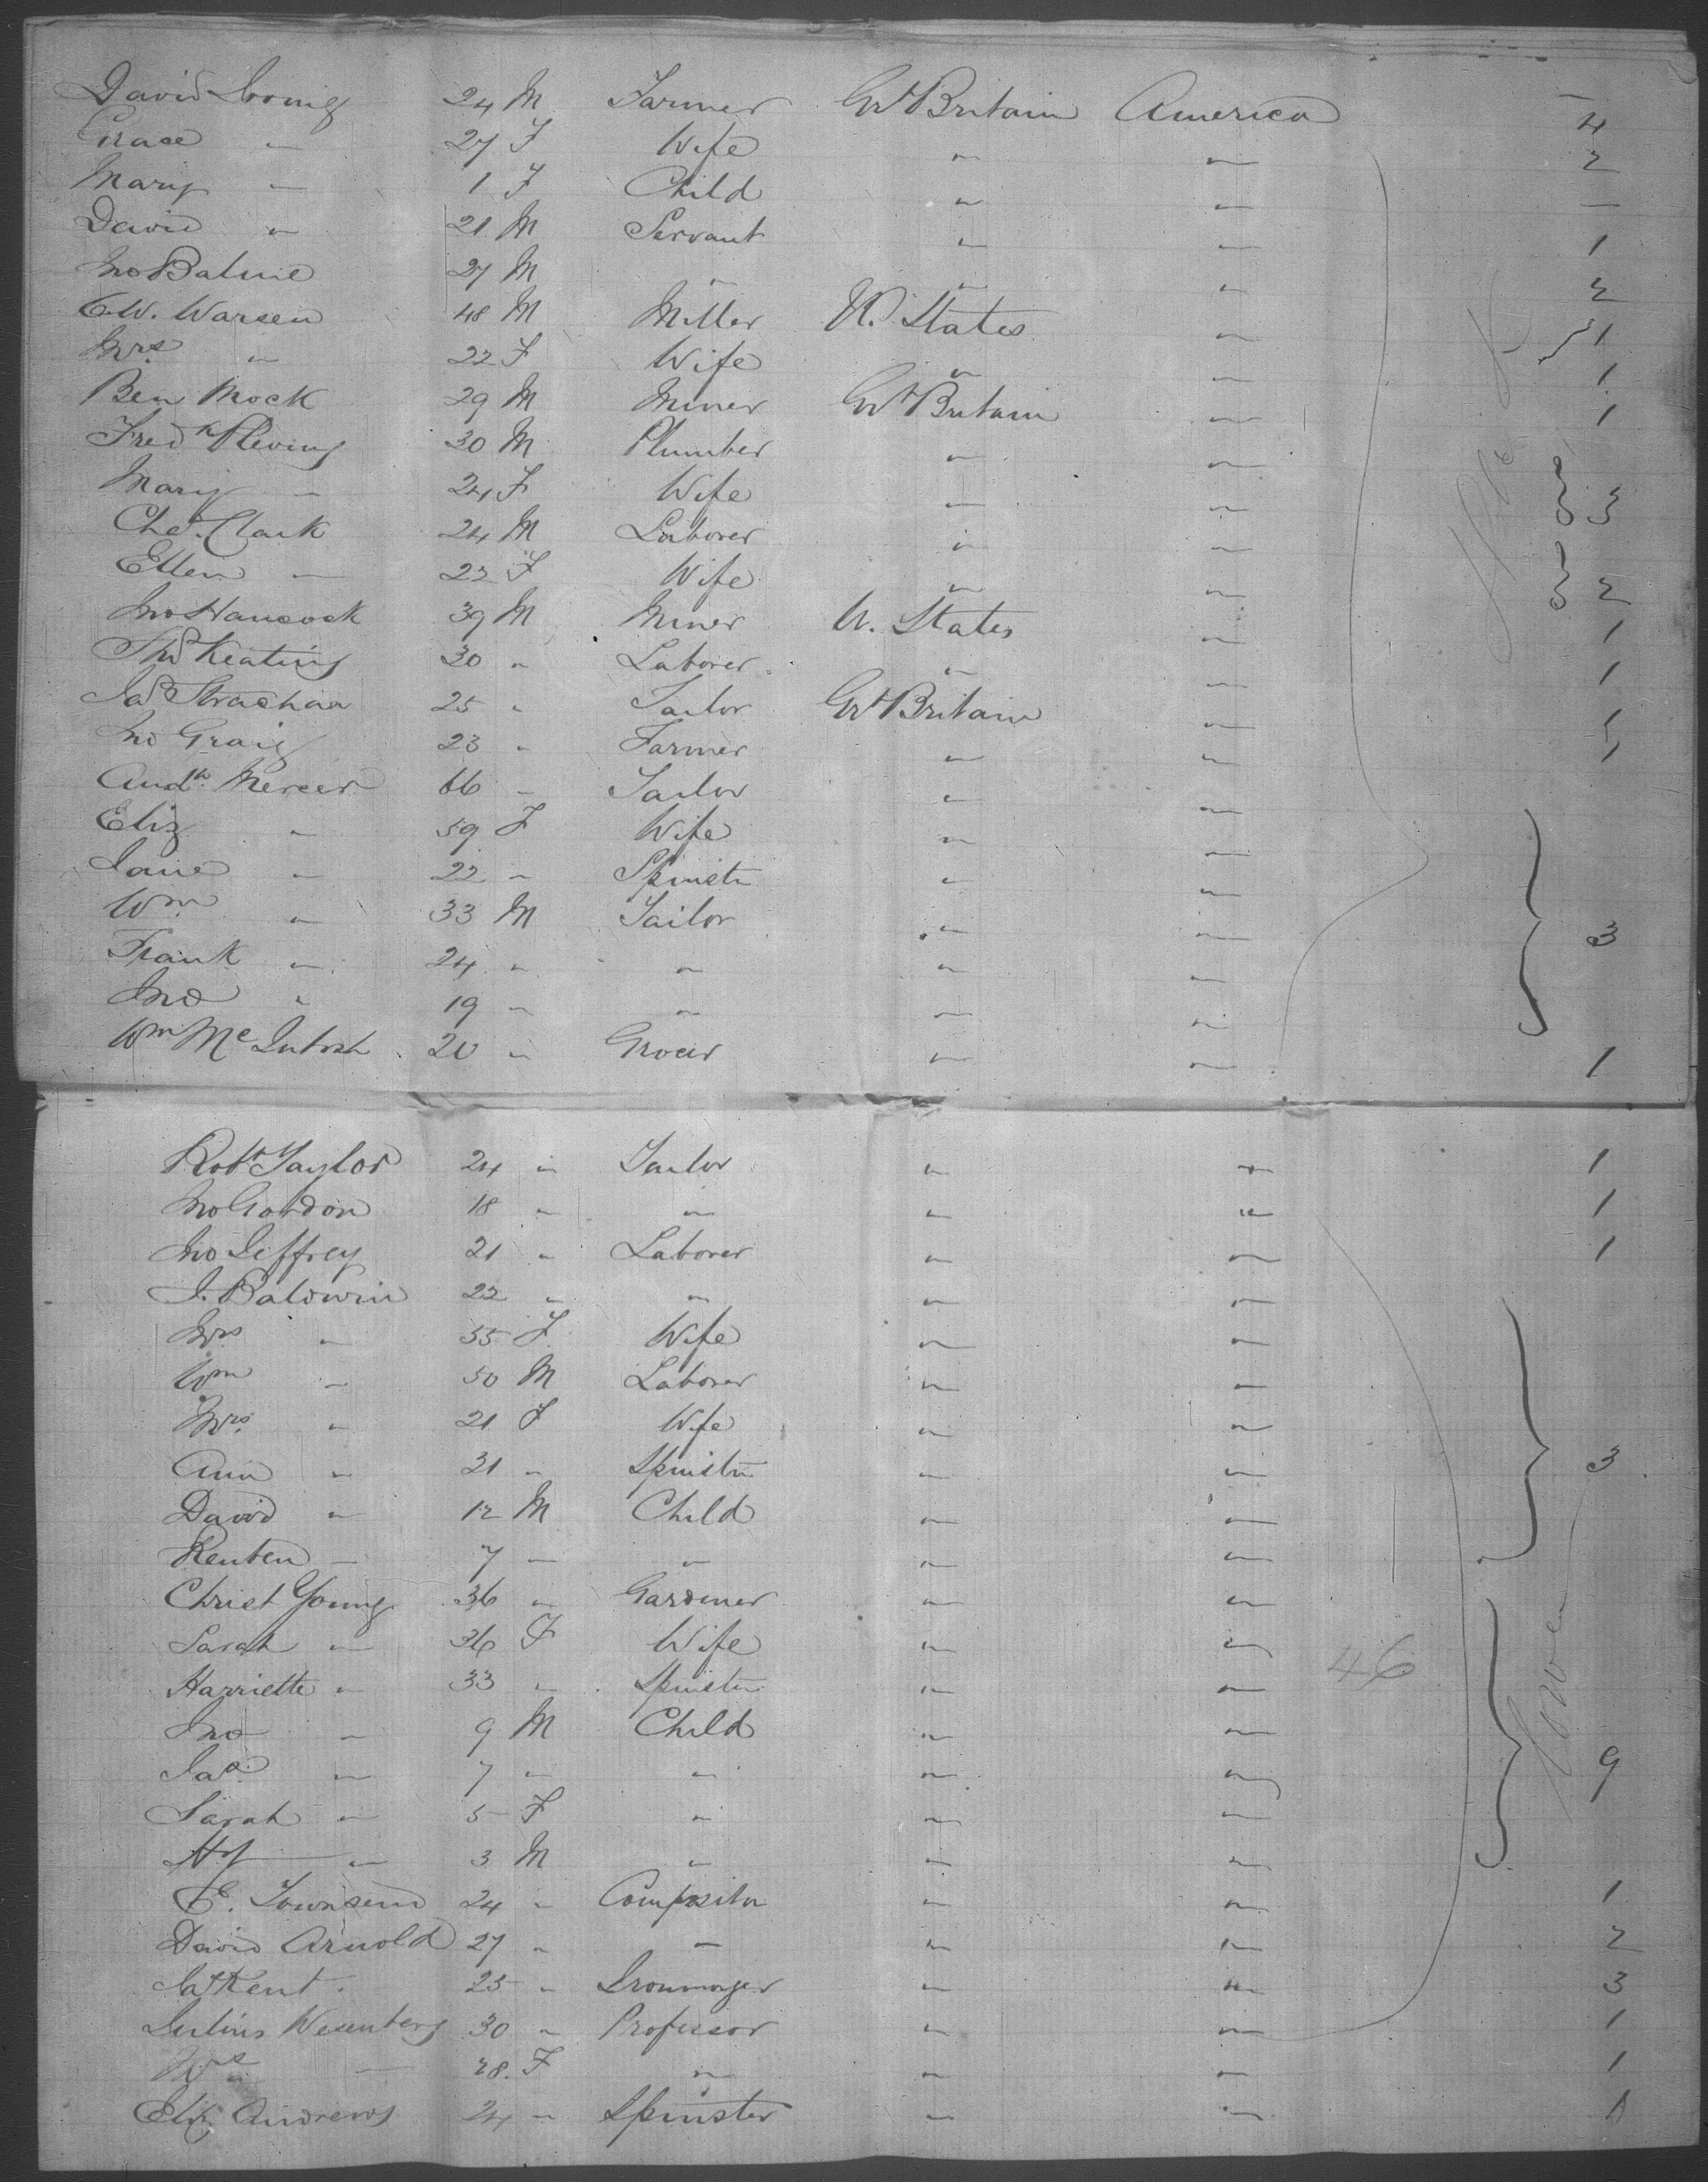 David 24 M Farmer Gt Britain America —
Grace " 27 F Wife " " 4
Mary " 1 F Child " " 2
David " 21 M Servant " " —
Jno 27 M " " " 1
C.W. Warsen 48 M Miller U. States " 2
Mrs " 22 F Wife " " 1
Ben Mock 29 M Miner Gt Britain " 1
Fredk Pleving 30 M Plumber " " 1
Mary " 24 F Wife " " 3
Chs. Clark 24 M Laborer " "
Ellen " 22 F Wife " " 2
Jno Hancock 39 M Miner U. States " 1
Thos Keating 30 " Laborer " " 1
Jas Strachan 25 " Tailor Gt Britain " 1
Jno Graig 23 " Farmer " " 1
Mercer 66 " Tailor " "
Eliz " 59 F Wife " "
Jane " 22 " Spinstr " "
Wm " 33 M Tailor " " 3
Frank " 24 " " " "
Jno " 19 " " " "
Wm McIntosh 20 " Grocer " " 1
Robt Taylor 24 " Tailor " " 1
Jno Gordon 18 " " " " 1
Jno Jeffrey 21 " Laborer " " 1
J. Baldwin 22 " " " "
Mrs " 55 F Wife " "
Wm " 50 M Laborer " "
Mrs. " 21 F Wife " "
Ann " 31 " Spinstr " " 3
David " 12 M Child " "
Reuben " 7 " " " "
Christ Young 36 " Gardener " "
Sarah " 36 F Wife " " 46
Harriette " 33 " Spinstr " "
Jno " 9 M Child " "
Jas " 7 " " " " 9
Sarah " 5 F " " "
Hy " 3 M " " "
E. Townsend 24 " Compositor " " 1
David Arnold 27 " " " " 2
Jas Kent. 25 " Ironmonger " " 3
Julius Wesenberg 30 " Professor " " 1
Mrs " 28. F " " " 1
Eliz Andrews 24 " Spinster " " 1